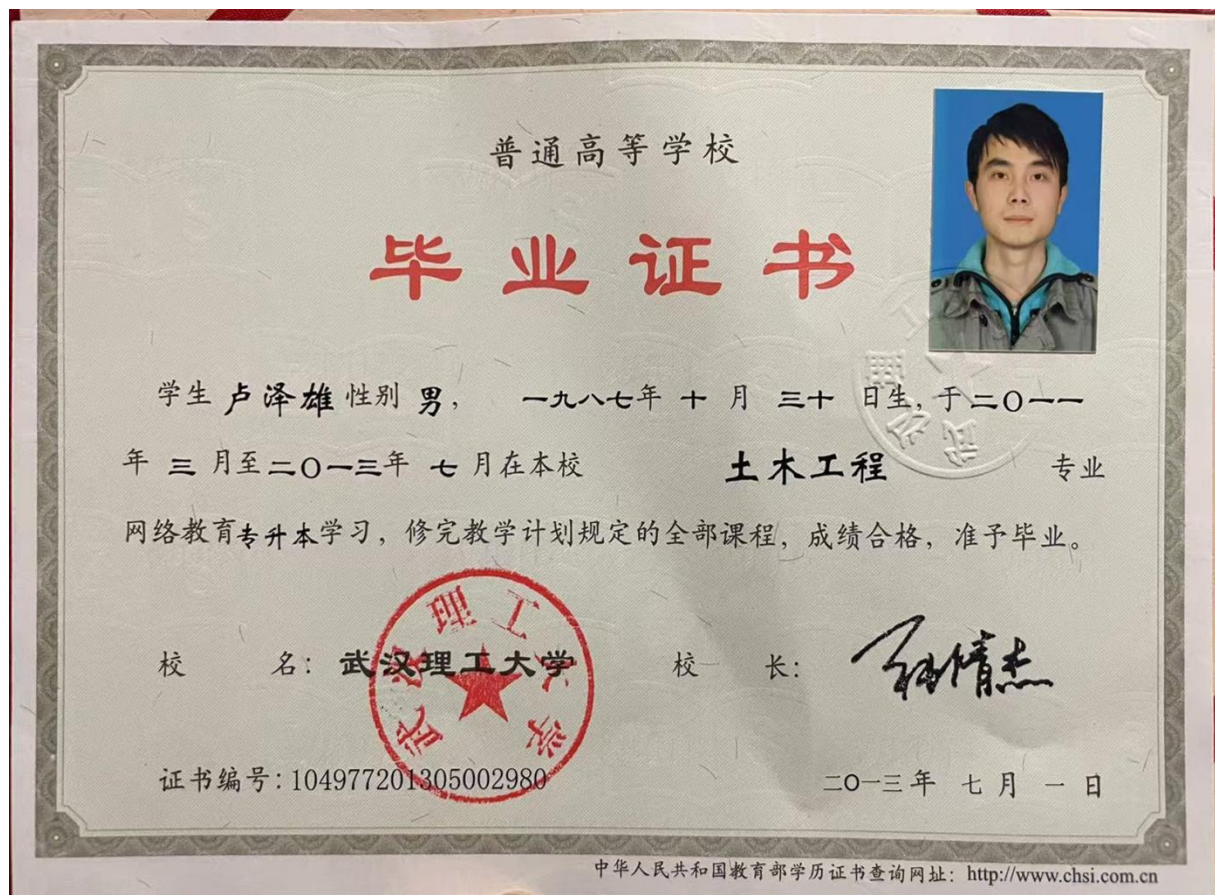 普通高等学校
毕业证书
学生 卢泽雄 性别 男， 一九八七年 十 月 三十 日生，于二〇一一
年 三 月至二〇一三年 七 月在本校 土木工程 专业
网络教育专升本学习，修完教学计划规定的全部课程，成绩合格，准予毕业。
校 名：武汉理工大学 校 长：
武汉理工大学
证书编号：104977201305002980 二〇一三年 七 月 一 日
中华人民共和国教育部学历证书查询网址：http://www.chsi.com.cn